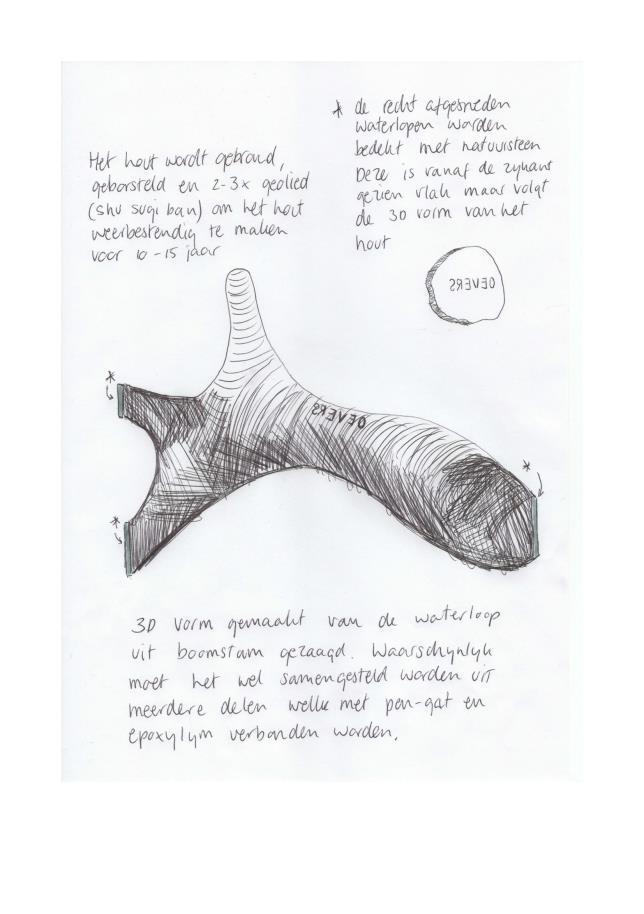 Het hout wordt gebrand,
geborsteld en 2-3x geolied
(shu sugi ban) om het hout
weerbestendig te maken
voor 10-15 jaar
* de recht afgesneden
waterlopen worden
bedekt met natuursteen
Deze is vanaf de zijkant
gezien vlak maar volgt
de 3D vorm van het
hout
OEVERS
*
OEVERS
*
*
3D vorm gemaakt van de waterloop
uit boomstam gezaagd. Waarschijnlijk
moet het wel samengesteld worden uit
meerdere delen welke met pen-gat en
epoxylijm verbonden worden.